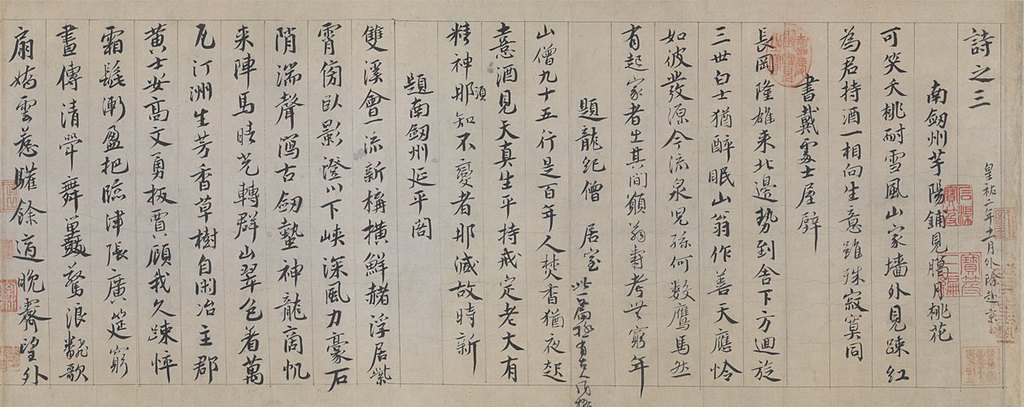 詩之三
皇祐二年十一月外除赴京
南劔州芋陽鋪見臘月桃花
可笑夭桃耐雪風山家墻外見踈紅
為君持酒一相向生意雖殊寂寞同
書戴處士屋壁
長岡隆雄來北邊勢到舍下方迴旋
三世白士猶醉眠山翁作善天應憐
如彼發源今流泉兒孫何數鷹馬然
有起家者生其間願翁壽考無窮年
題龍紀僧居室 此一篇極有古人風格
山僧九十五行是百年人焚香猶夜起
憙酒見天真生平持戒定老大有
精神那須知不變者那減故時新
題南劔州延平閣
雙溪會一流新構橫鮮赭浮居紫
霄傍臥影澄川下峽深風力豪石
陗湍聲瀉古劔蟄神龍商帆
來陣馬晴光轉群山翠色著萬
瓦汀洲生芳香草樹自閑冶主郡
黃士安高文勇扳賈顧我久踈悴
霜髭漸盈把臨津張廣筵窮
晝傳清斝舞鼉驚浪翻歌
扇嬌雲惹驩餘適晚霽望外